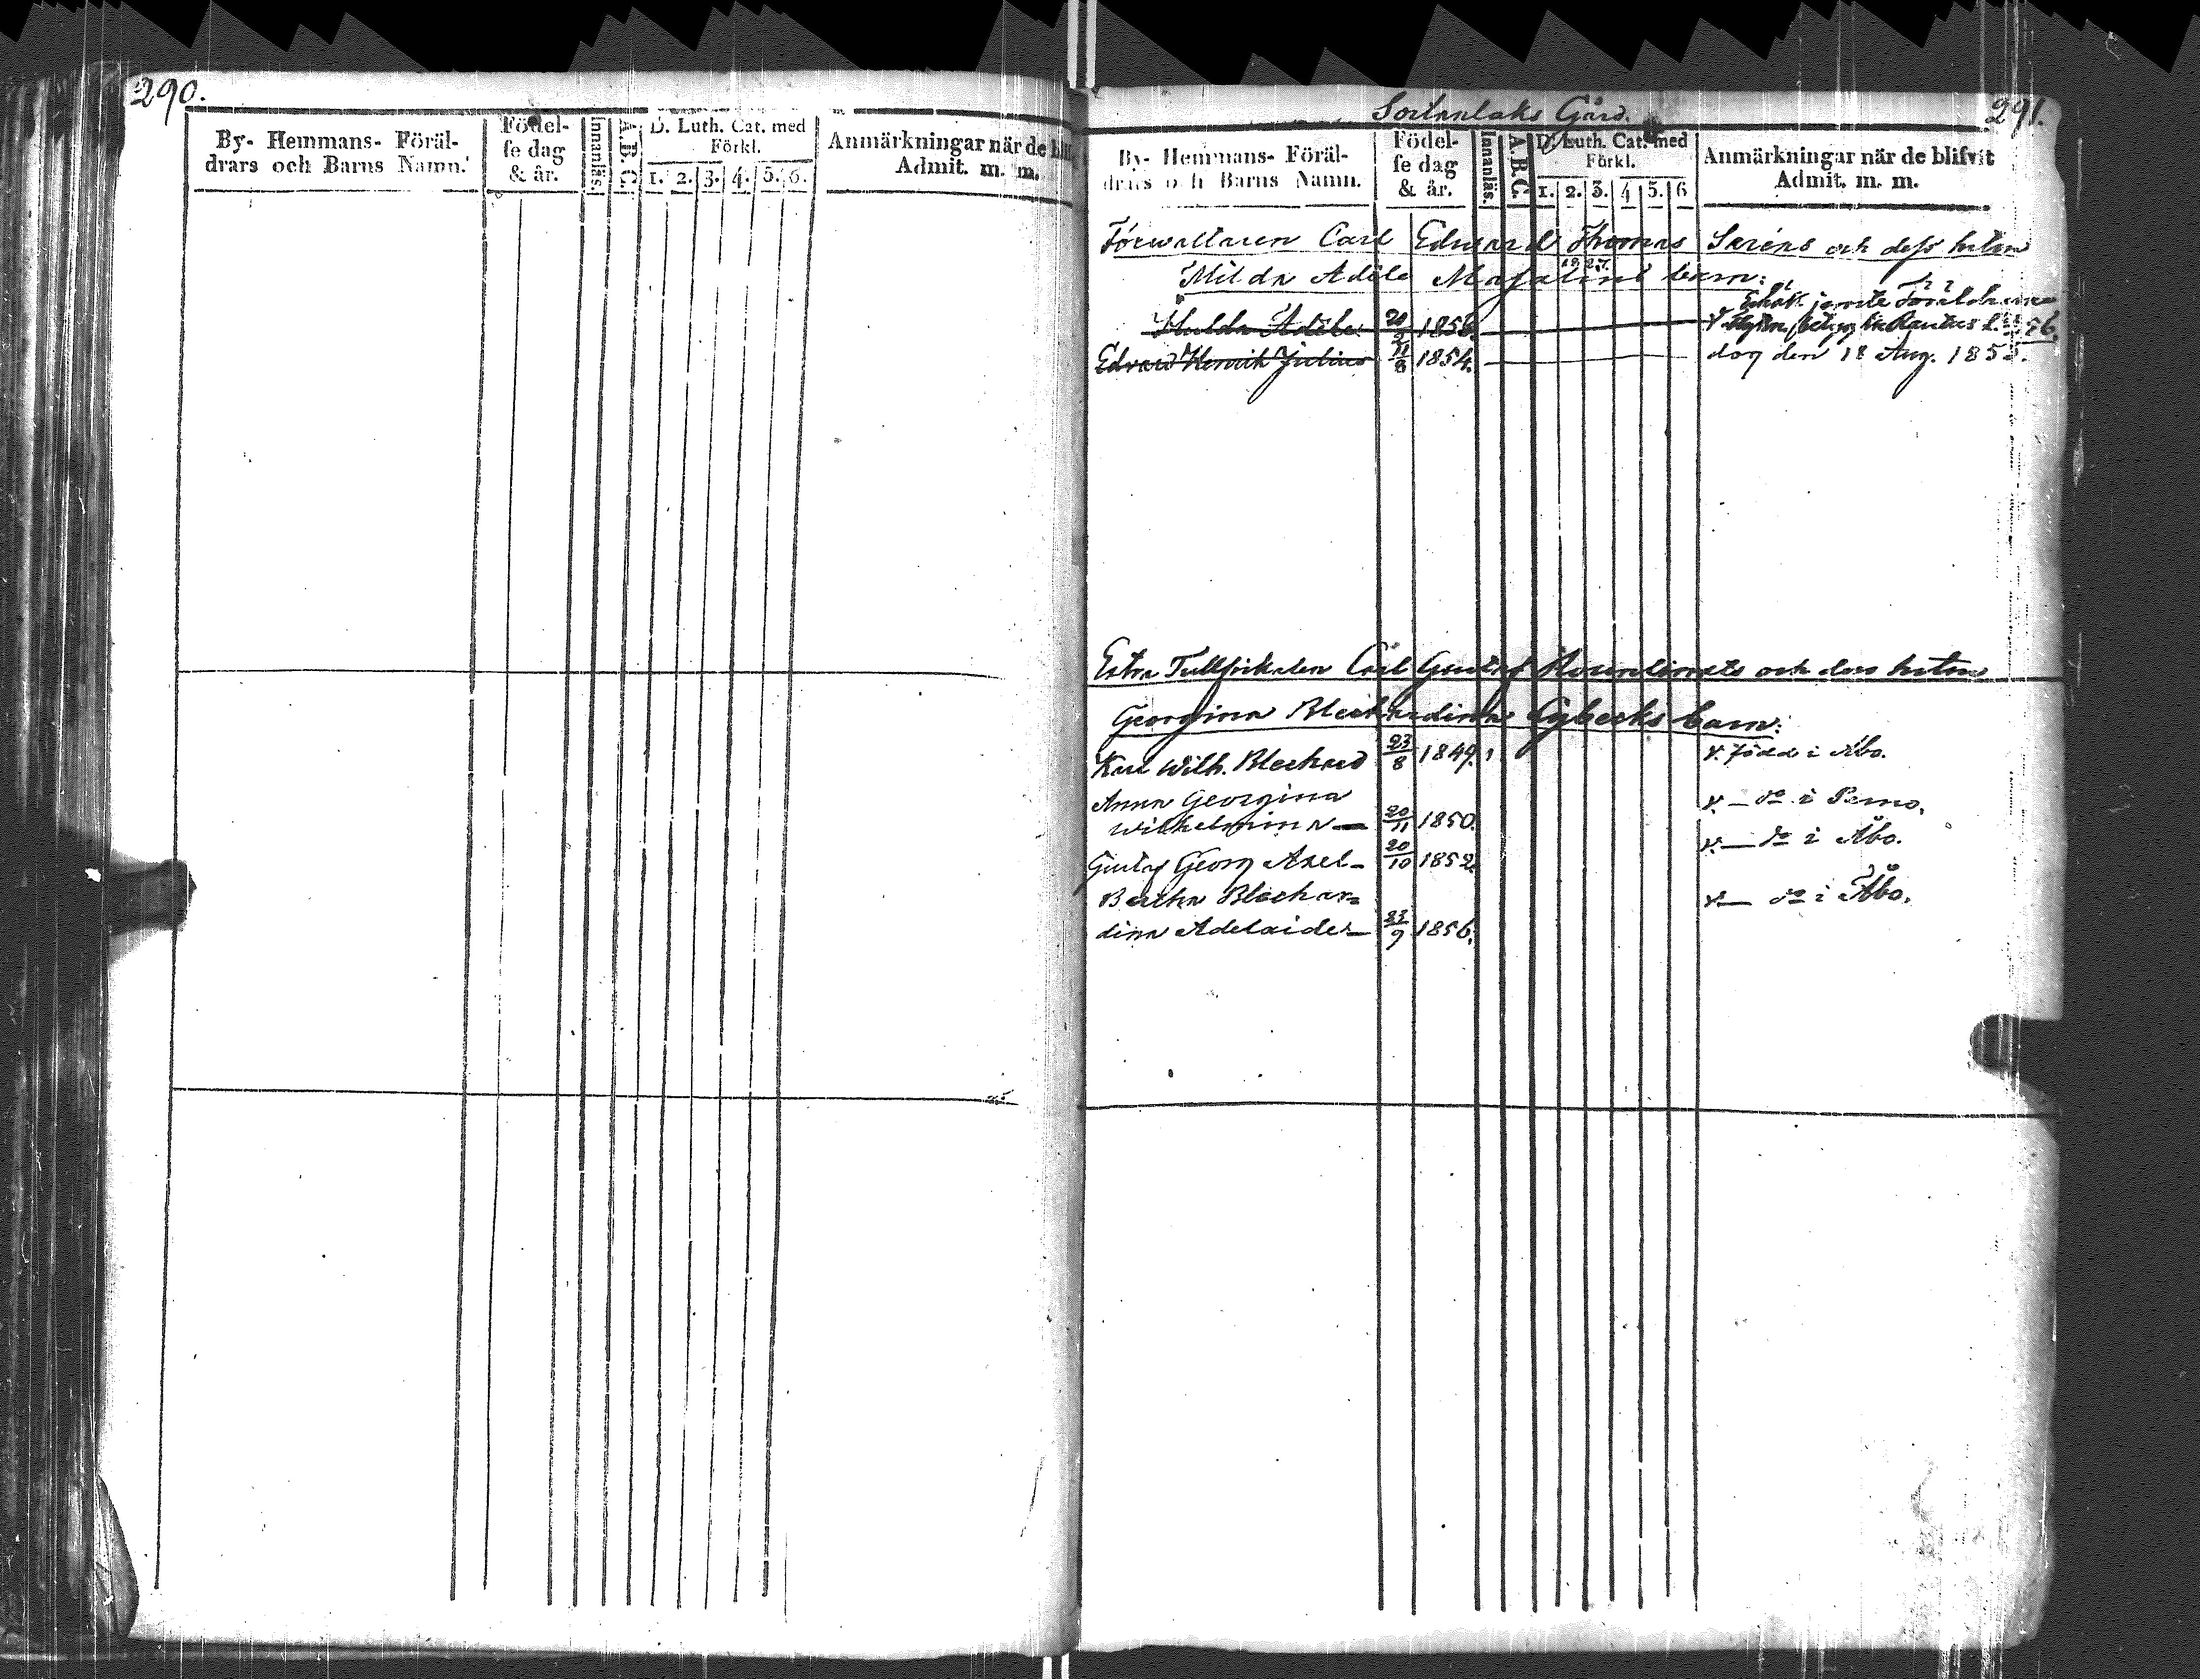 290.
By- Hemmans- Föräl-
drars och Barns Namn.
Födel-
se dag
& år.
Innanläs.
A.B.C.
D. Luth. Cat. med
Förkl.
1. 2. 3. 4. 5. 6.
Anmärkningar när de
Admit. m. m.
Gård.
291.
By- Hemmans- Föräl-
drars och Barns Namn.
Födel-
se dag
& år.
Innanläs.
A.B.C.
D. Luth. Cat. med
Förkl.
1. 2. 3. 4 5. 6
Anmärkningar när de blifvit
Admit. m. m.
Förwaltaren Carl Edward Thomas och dess
Milda Adéle barn:
jemte Föräldrarne
Hulda Adéle 20 1853
Edvard Henrik Julius 11/8 1854. dog den 18 Aug. 185
Extra Carl Gustaf och dess
Georgina Blechardina Cygbecks barn:
Karl Wilh. Blechard 23/8 1849. född i Åbo.
Anna Georgina
Wilhelmina 20/11 1850. do i Perno.
Gustaf Georg Axel 20/10 1852. do i Åbo.
Bertha Blechar-
dina Adelaide 22/9 1856. do i Åbo.